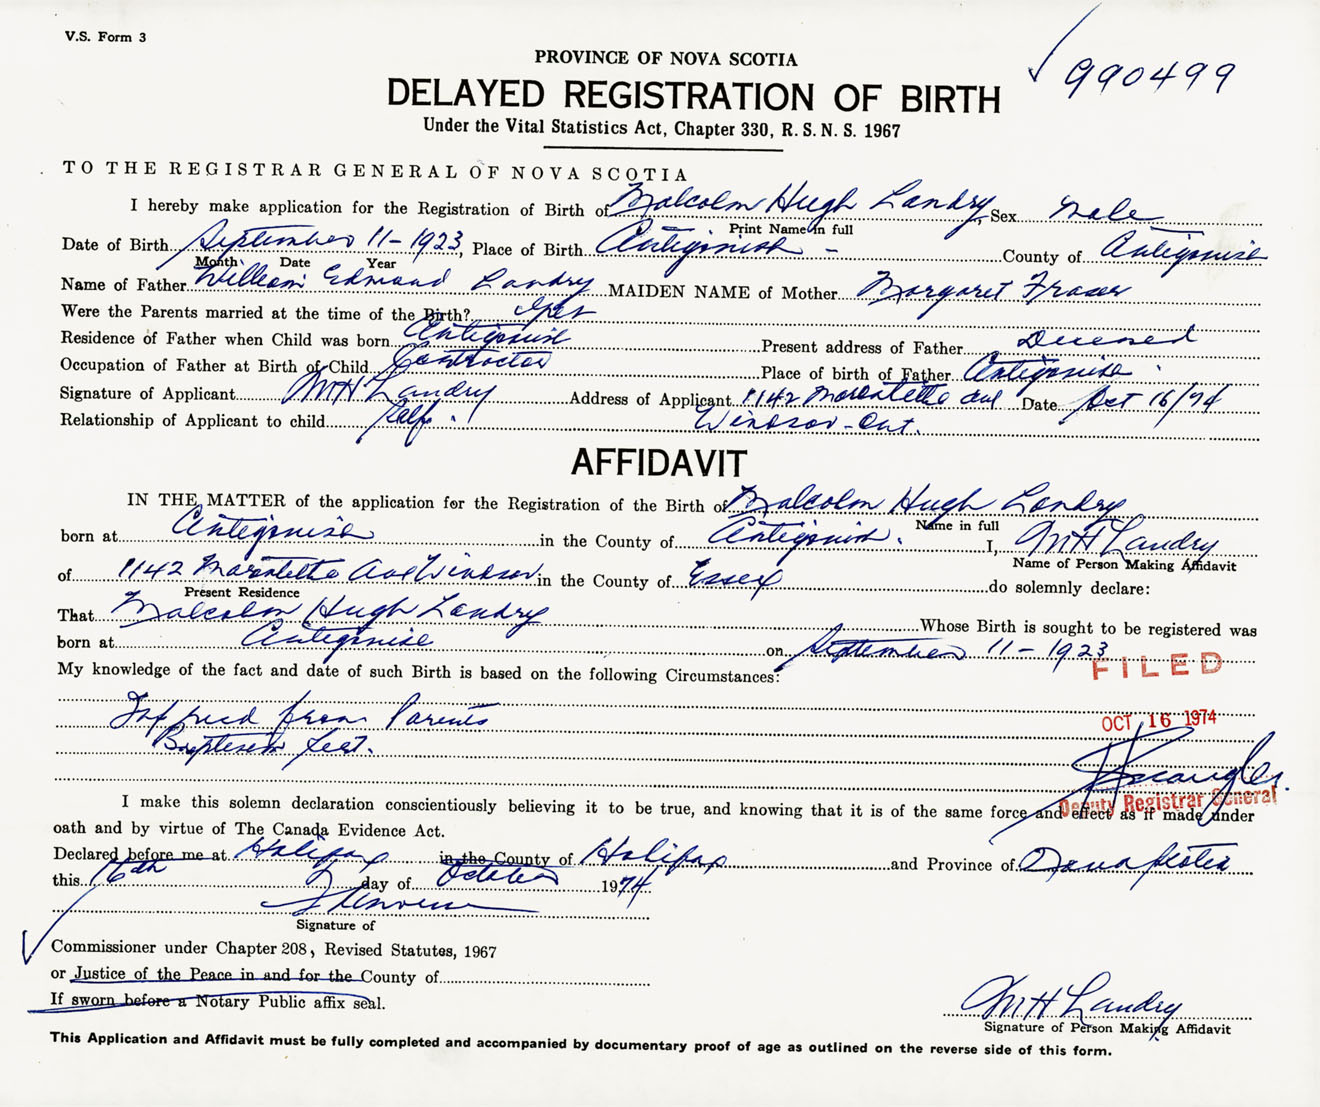 V.S. Form 3
PROVINCE OF NOVA SCOTIA
990499
DELAYED REGISTRATION OF BIRTH
Under the Vital Statistics Act, Chapter 330, R. S. N. S. 1967
TO THE REGISTRAR GENERAL OF NOVA SCOTIA
I hereby make application for the Registration of Birth of Malcolm Hugh Landry Sex Male
Print Name in full
Date of Birth September 11-1923, Place of Birth Antigonish - County of Antigonish
Month Date Year
Name of Father William Edmond Landry MAIDEN NAME of Mother Margaret Fraser
Were the Parents married at the time of the Birth? Yes
Residence of Father when Child was born Antigonish Present address of Father Deceased
Occupation of Father at Birth of Child Contractor Place of birth of Father Antigonish
Signature of Applicant MH Landry Address of Applicant 1142 Marentette Ave Date Oct 16/74
Relationship of Applicant to child Self. Windsor-Ont.
AFFIDAVIT
IN THE MATTER of the application for the Registration of the Birth of Malcolm Hugh Landry
Name in full
born at Antigonish in the County of Antigonish. I, MH Landry
Name of Person Making Affidavit
of 1142 Marentette Ave Windsor in the County of Essex do solemnly declare:
Present Residence
That Malcolm Hugh Landry Whose Birth is sought to be registered was
born at Antigonish on September 11-1923
FILED
My knowledge of the fact and date of such Birth is based on the following Circumstances:
from Parents
OCT 16 1974
Baptism
Deputy Registrar General
I make this solemn declaration conscientiously believing it to be true, and knowing that it is of the same force and effect as if made under
oath and by virtue of The Canada Evidence Act.
Declared before me at Halifax in the County of Halifax and Province of Nova Scotia
this 16th day of October 1974
Signature of
Commissioner under Chapter 208, Revised Statutes, 1967
or Justice of the Peace in and for the County of
If sworn before a Notary Public affix seal.
MH Landry
Signature of Person Making Affidavit
This Application and Affidavit must be fully completed and accompanied by documentary proof of age as outlined on the reverse side of this form.